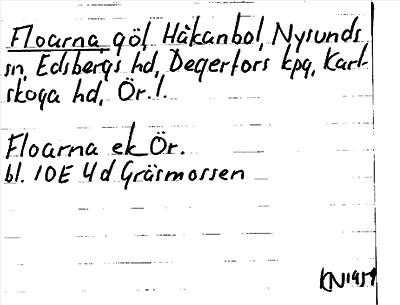 Floarna göl, Håkanbol, Nysunds
sn, Edsbergs hd, Degerfors kpg, Karl-
skoga hd, Ör. l.
Floarna ek Ör.
bl. 10E 4d Gräsmossen
KN1959